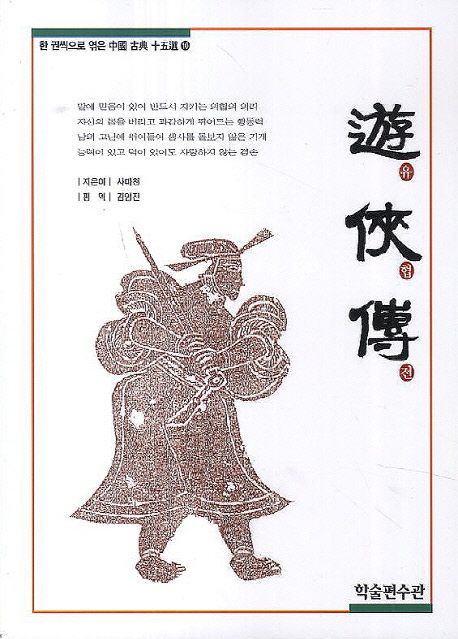 한 권씩으로 엮은 中國 古典 十五選 10
말에 믿음이 있어 반드시 지키는 의협의 의리
자신의 몸을 버리고 과감하게 뛰어드는 행동력
남의 고난에 뛰어들어 생사를 돌보지 않은 기개
능력이 있고 덕이 있어도 자랑하지 않는 겸손
|지은이| 사마천
|편 역| 김영진
遊 유
俠 협
傳 전
학술편수관